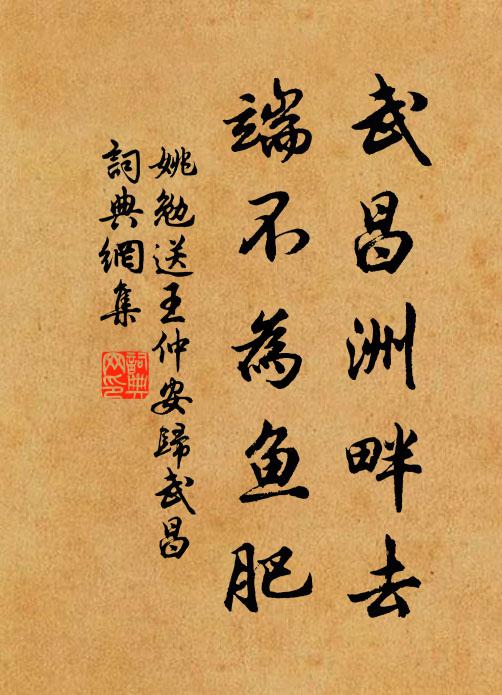 武昌洲畔去
端不為鱼肥
姚勉送王仲安歸武昌
詞典網集
詞典網印